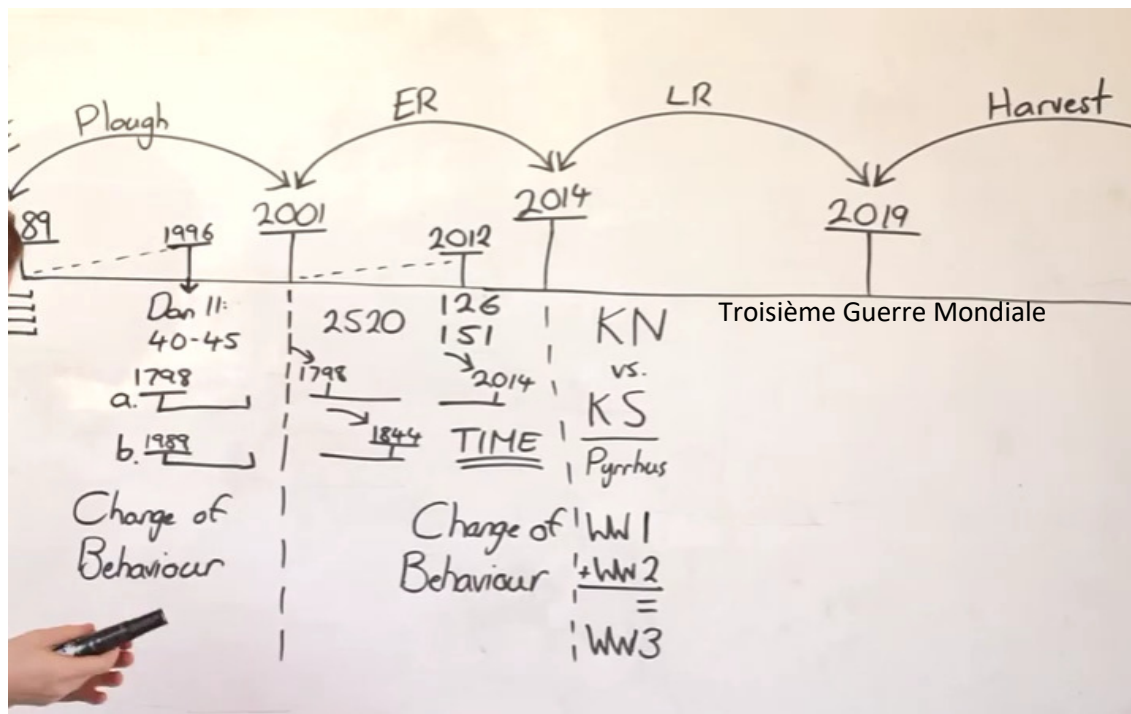 Plough
ER
LR
Harvest
89
1996
2001
2012
2014
2019
Dan 11:
40-45
a. 1798
b. 1989
Change of
Behaviour
2520
1798
1844
126
151
2014
TIME
Change of
Behaviour
KN
vs.
KS
Pyrrhus
WW1
+WW2
=
WW3
Troisième Guerre Mondiale